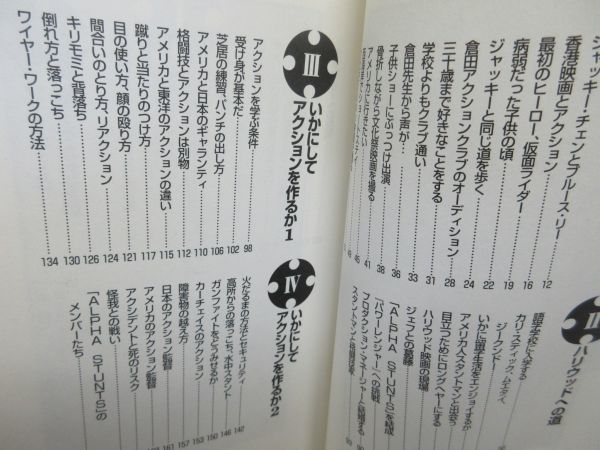 ジャッキー・チェンとブルース・リー
香港映画とアクション……12
最初のヒーロー、仮面ライダー……16
病弱だった子供の頃……19
ジャッキーと同じ道を歩く……22
倉田アクションクラブのオーディション……24
三十歳まで好きなことをする……28
学校よりもクラブ通い……31
倉田先生から声が……33
子供ショーにぶっつけ出演……36
骨折しながら文化祭映画を撮る……38
アメリカに行きたい……41
II ハリウッドへの道
語学学校に入学する
カリ・スティック、ムエタイ
ジークンドー
いかに留学生活をエンジョイするか
アメリカ人スタントマンと出会う
目立つためにロングヘヤーにする
ハリウッド映画の現場
ジェフとの葛藤
「ALPHA STUNTS」を結成
『パワーレンジャー』への挑戦
プロダクション・マネージャーと結婚する
スタントマンと格闘技家
III いかにして
アクションを作るか1
アクションを学ぶ条件……98
受け身が基本だ……102
芝居の練習、パンチの出し方……106
アメリカと日本のギャランティ……110
格闘技とアクションは別物……112
アメリカと東洋のアクションの違い……115
蹴りと当たりのつけ方……117
目の使い方、顔の殴り方……121
間合いのとり方、リアクション……124
キリモミと背落ち……126
倒れ方と落っこち……130
ワイヤー・ワークの方法……134
IV いかにして
アクションを作るか2
火だるまの方法とセキュリティ……142
高所からの落っこち、水中スタント……146
ガンファイトをどうみせるか……150
カーチェイスのアクション……153
障害物の越え方……157
日本のアクション監督……161
アメリカのアクション監督
アクシデントと死のリスク
怪我との戦い
「ALPHA STUNTS」の
メンバーたち